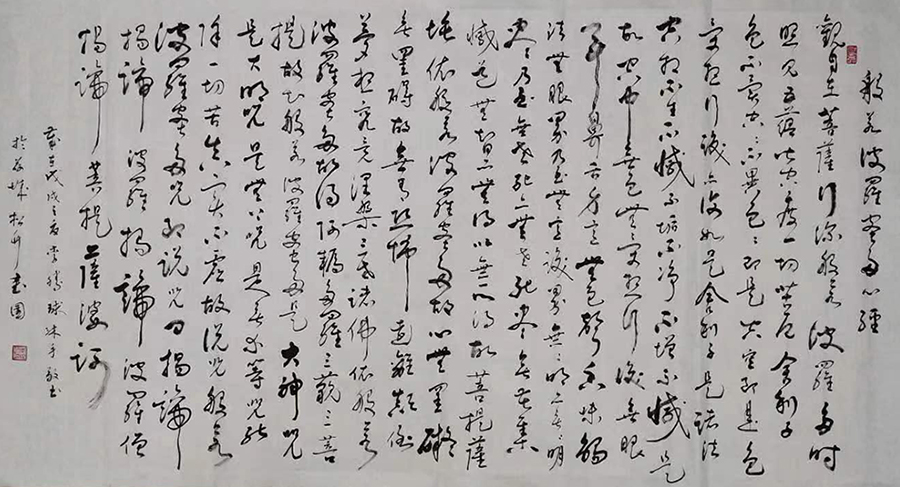 般若波羅蜜多心經
觀自在菩薩行深般若波羅多時
照見五蘊皆空度一切苦厄舍利子
色不異空空不異色色即是空空即是色
受想行識亦復如是舍利子是諸法
空相不生不滅不垢不淨不增不減是
故空中無色無受想行識無眼
耳鼻舌身意無色聲香味觸
法無眼界乃至無意識界無無明亦無無明
盡乃至無老死亦無老死盡無苦集
滅道無智亦無得以無所得故菩提薩
埵依般若波羅蜜多故心無罣礙
無罣礙故無有恐怖遠離顛倒
夢想究竟涅槃三世諸佛依般若
波羅蜜多故得阿耨多羅三藐三菩
提故知般若波羅蜜多是大神咒
是大明咒是無上咒是無等等咒能
除一切苦真實不虛故說咒般若
波羅蜜多咒即說咒曰揭諦
揭諦波羅揭諦波羅僧
揭諦菩提薩婆訶
歲在戊戌之春
於松竹書園